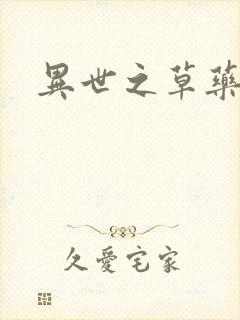 異世之草藥
久愛宅家